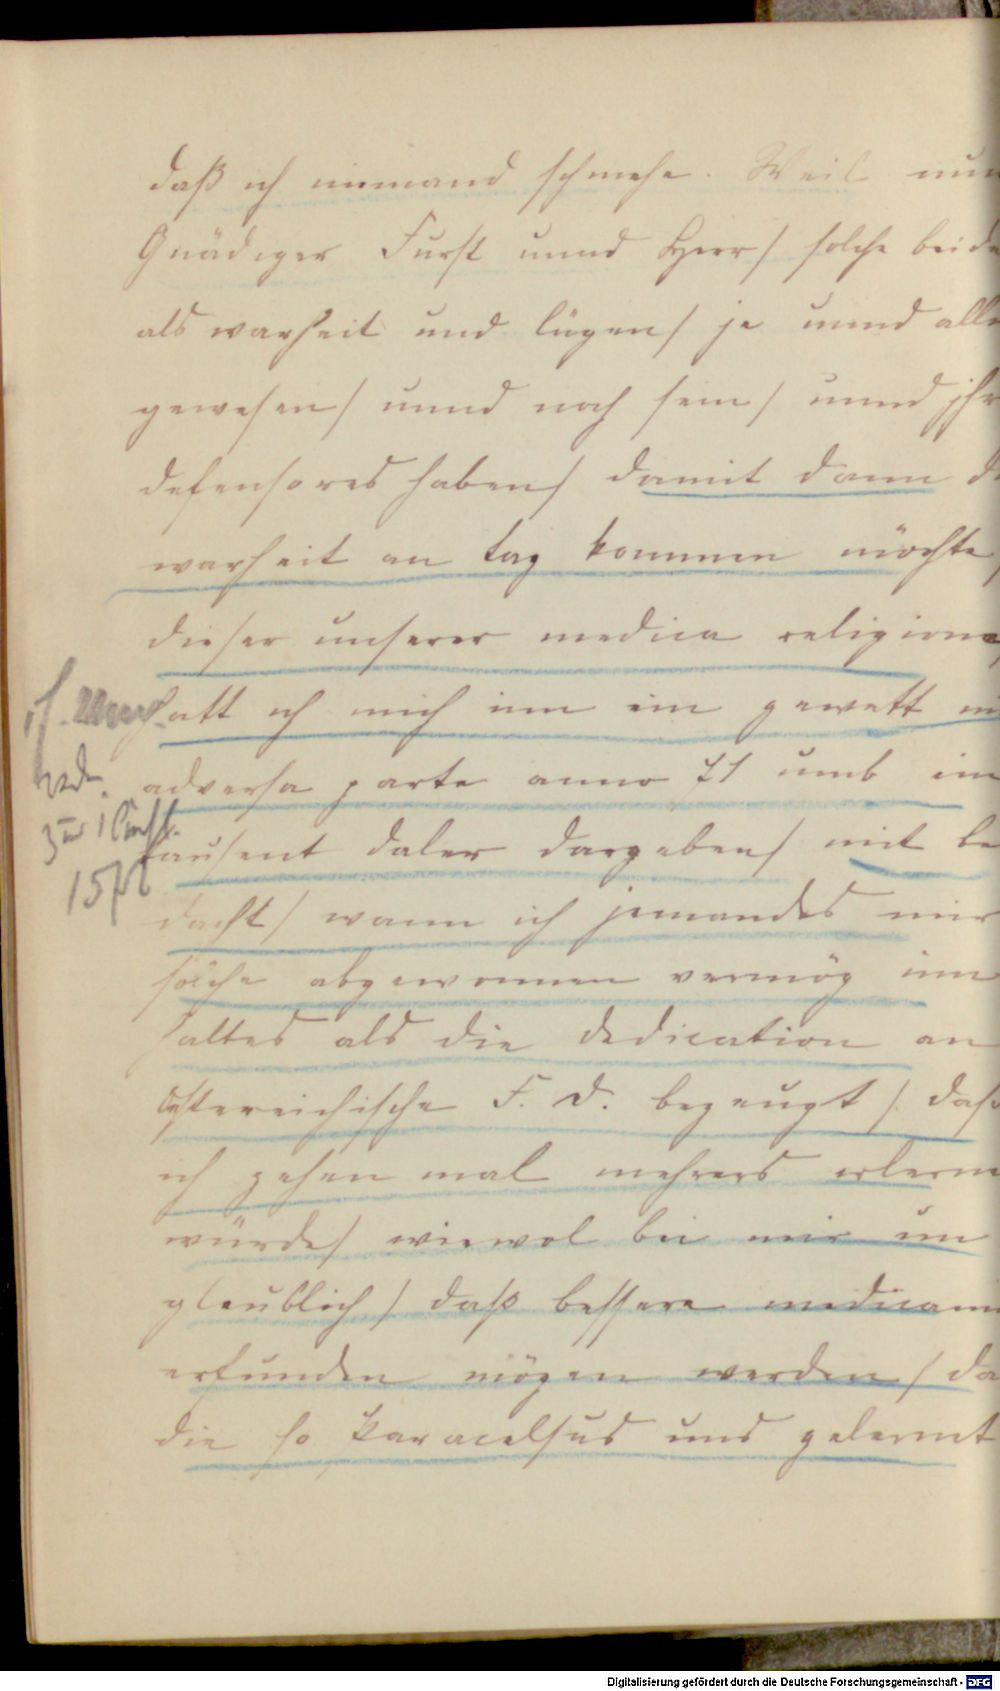 daß ich niemand schmehe. Weil nun
Gnädiger Furst unnd Herr/ solche beide
als warheit und lügen/ je unnd alle
gewesen/ unnd noch sein/ unnd jhr
defensores haben/ damit dann d
warheit an tag kommen möchte/
dieser unserer medica religione
hatt ich mich inn ein gewett in
adversa parte anno 71 umb ein
tausent daler dargeben/ mit be
dacht/ wann ich jemandes mir
solche abgewonnen vermög inn
haltes als die dedication an
Östereichische F. D. bezeugt/ daß
ich zehen mal mehrers erlerne
würde/ wiewol bei mir un
glaublich/ daß bessere medicam
erfunden mögen werden/ da
die so Paracelsus uns gelernt
Vorde.
zur
1571
Digitalisierung gefördert durch die Deutsche Forschungsgemeinschaft - DFG